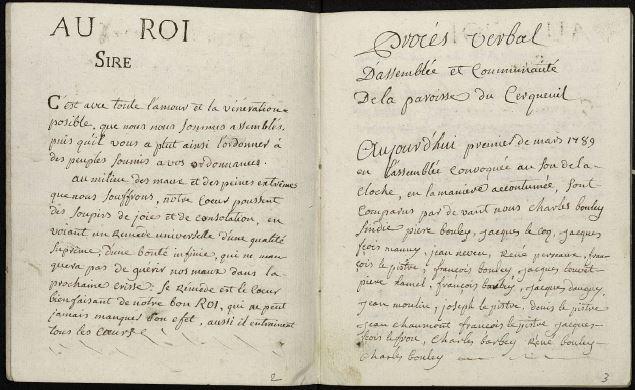 AU ROI
SIRE
C'est avec toute l'amour et la vénération
posible, que nous nous sommes assemblés,
puis qu'il vous a plut ainsi l'ordonner à
des peuples soumis a vos ordonnances.
au milieu des maux et des peines extrêmes
que nous souffrons, nôtre coeur poussent
des soupirs de joie et de consolation, en
voiant un Remède universelle d'une qualité
suprême, d'une bonté infinie, qui ne man
quera pas de guérir nos maux dans la
prochaine crisse: le Remède est le Coeur
bienfaisant de notre bon ROI, qui ne peut
jamais manquer son efet, aussi il entrainent
tous les Coeurs
2
Procés verbal
D'assemblée et Communauté
De la paroisse du Cerqueuil
Aujourd'hui premier de mars 1789
en l'assemblée convoquée au son de la
cloche, en la manière accoutumée, sont
comparus par devant nous Charles bouley
sindic piere bouley, jacques le coq, jacques
fçois mauny, jean neveu, René pernaux, fran
çois le pistre, françois bouley, jacques
piere hamel, françois barbey, jacques
jean moulin, joseph le pistre, denis le pistre
jean chaumont françois le pistre jacques
fçois, Charles barbey René bouley
Charles bouley
3